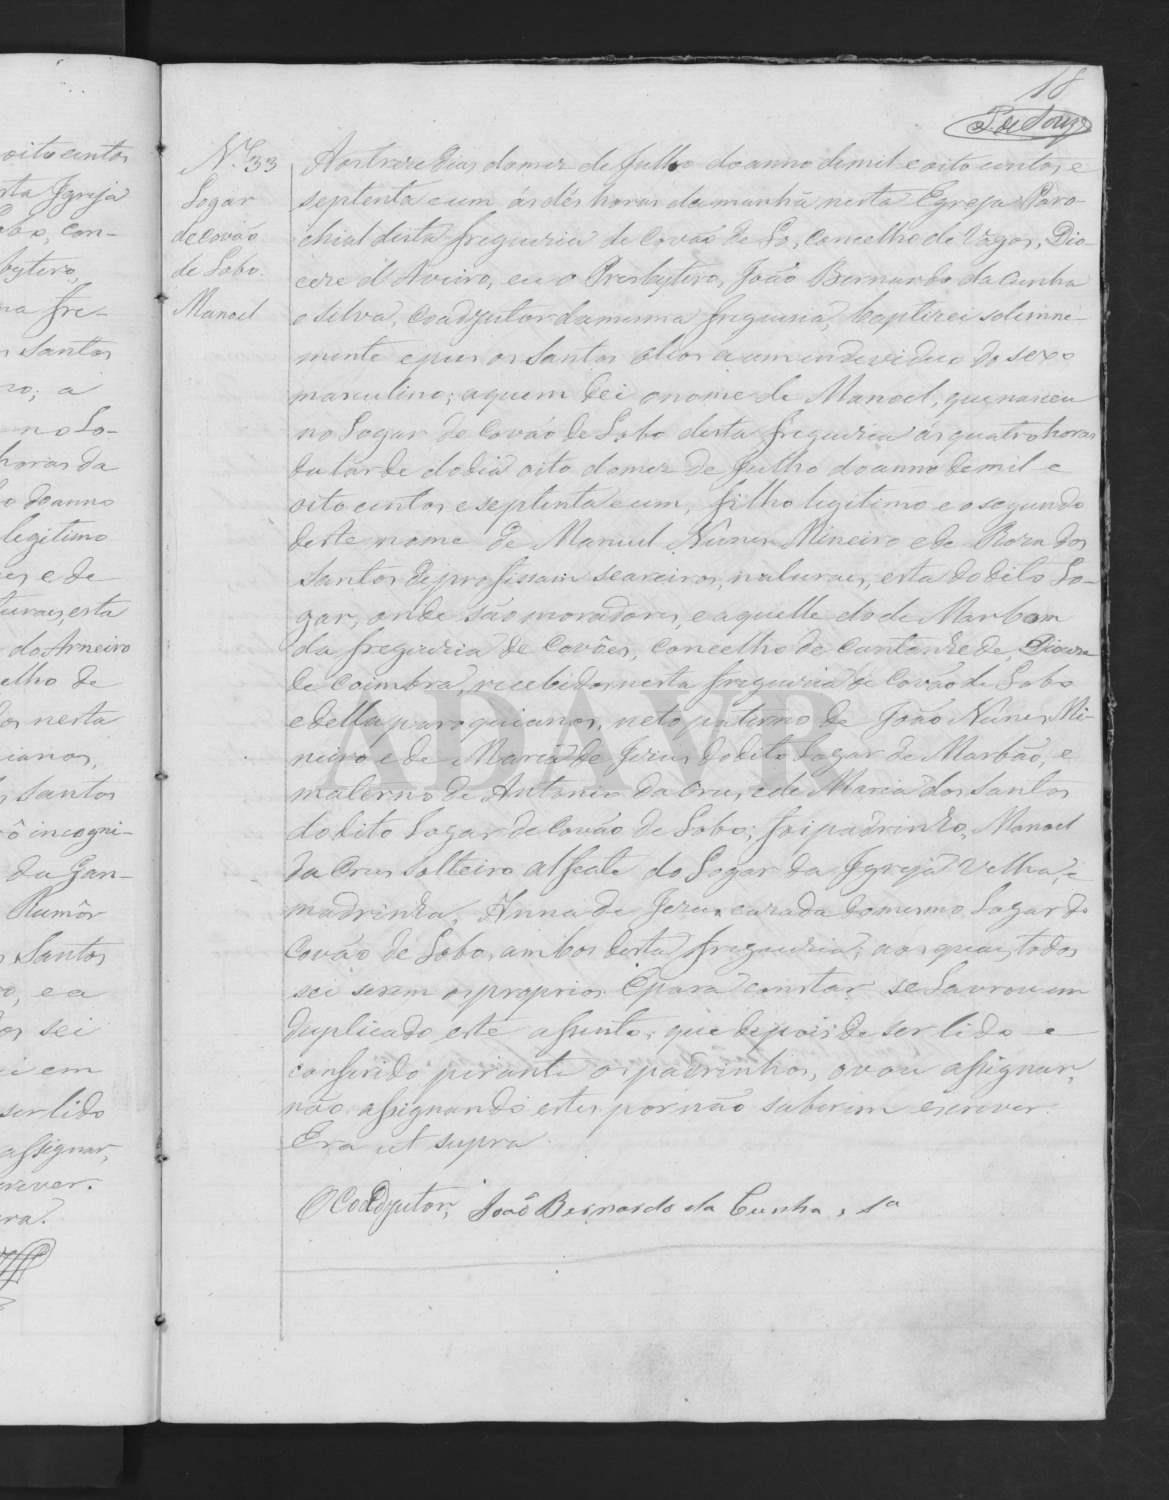 18
N.º 33
Logar
de Covão
de Lobo.
Manoel
Aos treze dias do mez de Julho do anno de mil e oito centos e
septenta e um ás dés horas da manhã nesta Egreja Paro-
chial desta freguezia de Covão de Lo, Concelho de Vagos, Dio-
cese d'Aveiro, eu o Presbytero, João Bernardo da Cunha
e Silva, Coadjutor da mesma freguezia, baptizei solemne-
mente e pus os Santos olios a um endeviduo do sexo
masculino; a quem dei o nome de Manoel, que nasceu
no Logar de Covão de Lobo desta freguezia ás quatro horas
da tarde do dia oito do mez de Julho do anno de mil e
oito centos e septenta e um, filho legitimo e o segundo
deste nome de Manuel Nunes Mineiro e de Roza dos
Santos de profissam seareiros, naturaes, esta do dito Lo-
gar, onde são moradores, e aquelle do de Marbam
da freguezia de Covões, concelho de Cantanhede, Diocese
de Coimbra, recebidos nesta freguezia de Covão de Lobo
e della paroquianos, neto paterno de João Nunes Mi-
neiro e de Maria de Jezus do dito Logar de Marbão, e
materno de Antonio da Crus, e de Maria dos Santos
do dito Logar de Covão de Lobo; foi padrinho, Manoel
da Crus solteiro alfeate do Logar da Igreja Velha, e
madrinha, Anna de Jezus cazada do mesmo Logar de
Covão de Lobo, ambos desta freguezia, aos quaes todos
sei serem os proprios. E para constar se Lavrou em
duplicado este assento, que depois de ser lido e
conferido perante os padrinhos, o vou assignar,
não assignando estes por não saberem escrever.
Era ut supra.
O Coadjutor, João Bernardo da Cunha, Sa
ADAVR
oito centos
sta Igreja
Lobo, Con-
bytero,
ma fre-
s Santos
no; a
no Lo-
horas da
o do anno
legitimo
es e de
turaes, esta
do Arneiro
elho de
os nesta
ianos,
s Santos
ô incogni-
da Gan-
Rumôr
s Santos
o, e a
os sei
i em
ser lido
assignar,
rever.
ra.